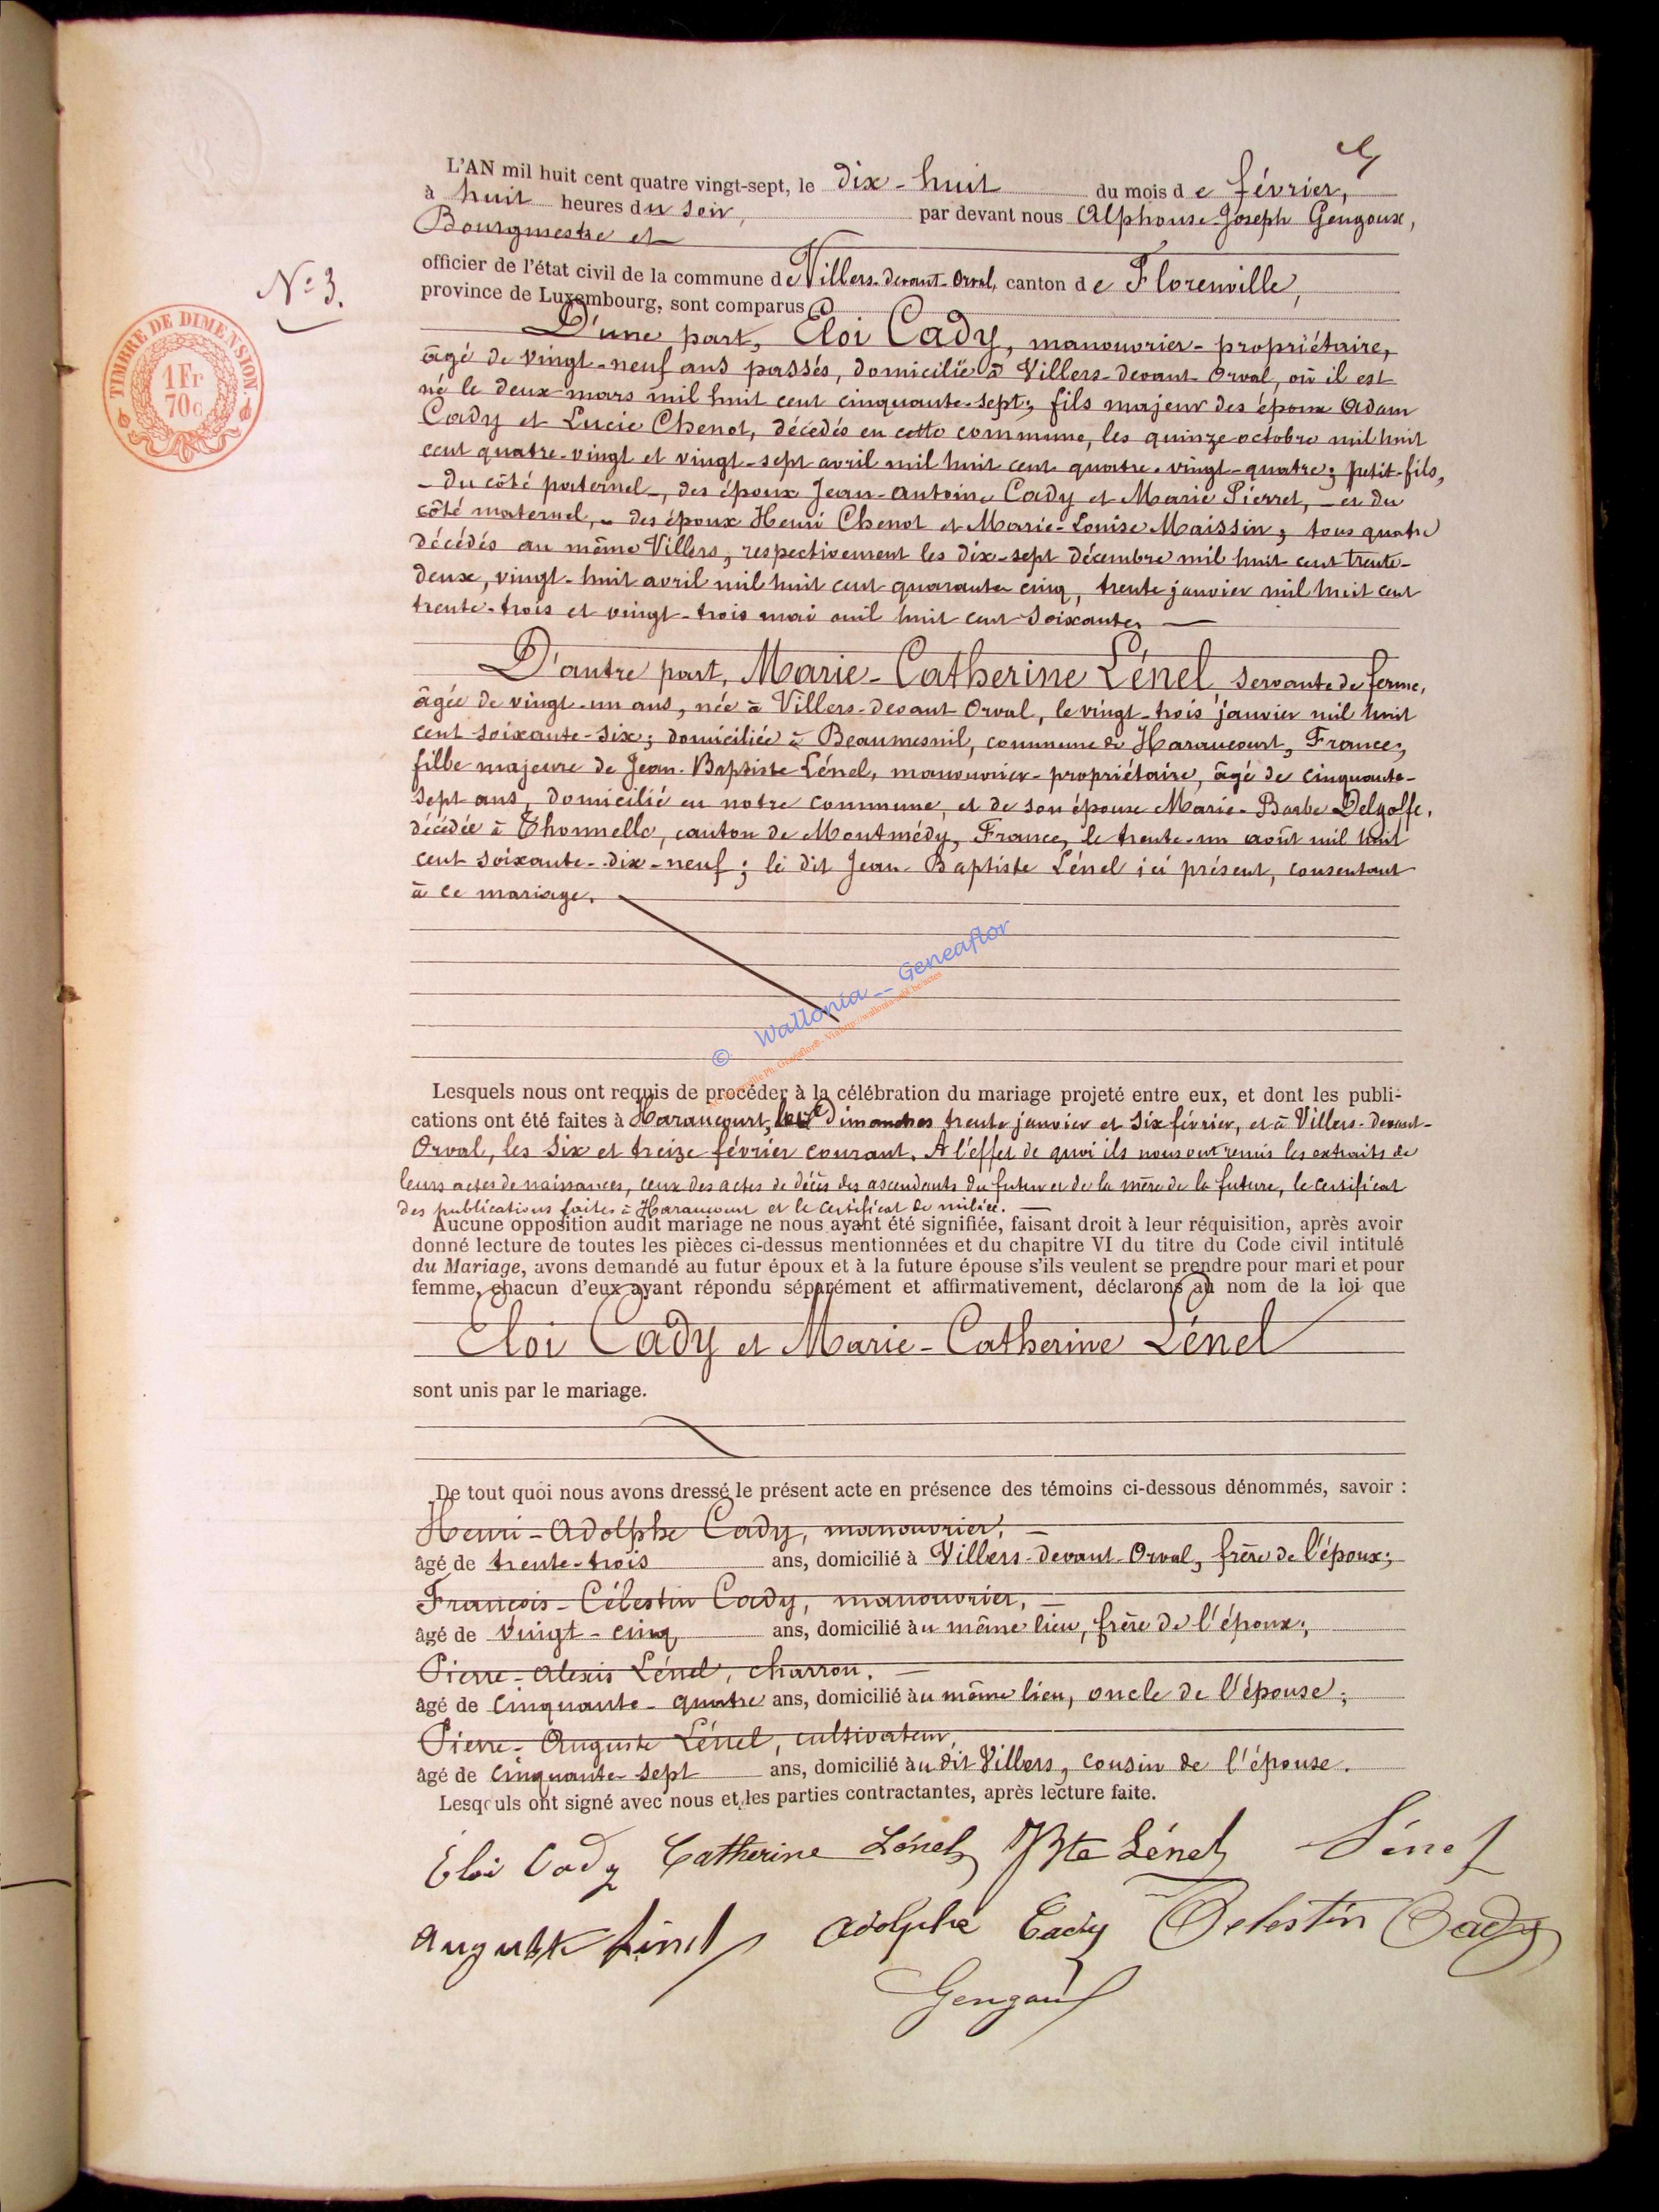 L'AN mil huit cent quatre vingt-sept, le dix-huit du mois de février,
à huit heures du soir, par devant nous Alphonse-Joseph Gengoux,
Bourgmestre et
officier de l'état civil de la commune de Villers-devant-Orval, canton de Florenville,
province de Luxembourg, sont comparus
N° 3.
TIMBRE DE DIMENSION
1 Fr
70c
D'une part, Eloi Cady, manouvrier-propriétaire,
âgé de vingt-neuf ans passés, domicilié à Villers-devant-Orval, où il est
né le deux mars mil huit cent cinquante-sept; fils majeur des époux Adam
Cady et Lucie Chenot, décédés en cette commune, les quinze octobre mil huit
cent quatre-vingt et vingt-sept avril mil huit cent quatre-vingt-quatre; petit-fils,
- du côté paternel -, des époux Jean-Antoine Cady et Marie Pierret, - et du
côté maternel, - des époux Henri Chenot et Marie-Louise Maissin; tous quatre
décédés au même Villers, respectivement les dix-sept décembre mil huit cent trente-
deux, vingt-huit avril mil huit cent quarante cinq, trente janvier mil huit cent
trente-trois et vingt-trois mai mil huit cent soixante. —
D'autre part, Marie-Catherine Lénel servante de ferme,
âgée de vingt-un ans, née à Villers-devant Orval, le vingt-trois janvier mil huit
cent soixante-six; domiciliée à Beaumesnil, commune de Haraucourt, France;
fille majeure de Jean-Baptiste Lénel, manouvrier-propriétaire, âgé de cinquante-
sept ans, domicilié en notre commune, et de son épouse Marie-Barbe Delgoffe,
décédée à Thonnelle, canton de Montmédy, France, le trente-un août mil huit
cent soixante-dix-neuf; le dit Jean-Baptiste Lénel ici présent, consentant
à ce mariage.
© Wallonia -- Geneaflor
Lesquels nous ont requis de procéder à la célébration du mariage projeté entre eux, et dont les publi-
cations ont été faites à Haraucourt, les dimanches trente janvier et six février, et à Villers-devant-
Orval, les six et treize février courant. A l'effet de quoi ils nous ont remis les extraits de
leurs actes de naissances, ceux des actes de décès des ascendants du futur et de la mère de la future, le certificat
des publications faites à Haraucourt et le certificat de milice. —
Aucune opposition audit mariage ne nous ayant été signifiée, faisant droit à leur réquisition, après avoir
donné lecture de toutes les pièces ci-dessus mentionnées et du chapitre VI du titre du Code civil intitulé
du Mariage, avons demandé au futur époux et à la future épouse s'ils veulent se prendre pour mari et pour
femme, chacun d'eux ayant répondu séparément et affirmativement, déclarons au nom de la loi que
Eloi Cady et Marie-Catherine Lénel
sont unis par le mariage.
De tout quoi nous avons dressé le présent acte en présence des témoins ci-dessous dénommés, savoir :
Henri-Adolphe Cady, manouvrier, —
âgé de trente-trois ans, domicilié à Villers-devant-Orval, frère de l'époux;
François-Célestin Cady, manouvrier, —
âgé de vingt-cinq ans, domicilié au même lieu, frère de l'époux;
Pierre-Alexis Lénel, charron, —
âgé de cinquante-quatre ans, domicilié au même lieu, oncle de l'épouse;
Pierre-Auguste Lénel, cultivateur,
âgé de cinquante-sept ans, domicilié au dit Villers, cousin de l'épouse.
Lesquels ont signé avec nous et les parties contractantes, après lecture faite.
Eloi Cady Catherine Lénel JBte Lénel Lénel
Auguste Linel Adolphe Cady Célestin Cady
Gengoux